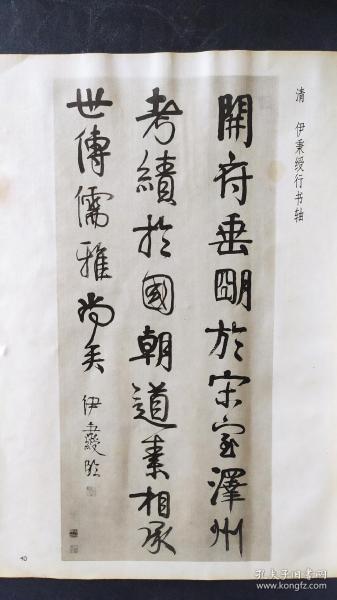 清 伊秉绶行书轴
開府垂朙於宋室澤州
考績於國朝道素相承
世傳儒雅尚矣
伊秉綬臨
40
孔夫子旧书网
kongfz.com